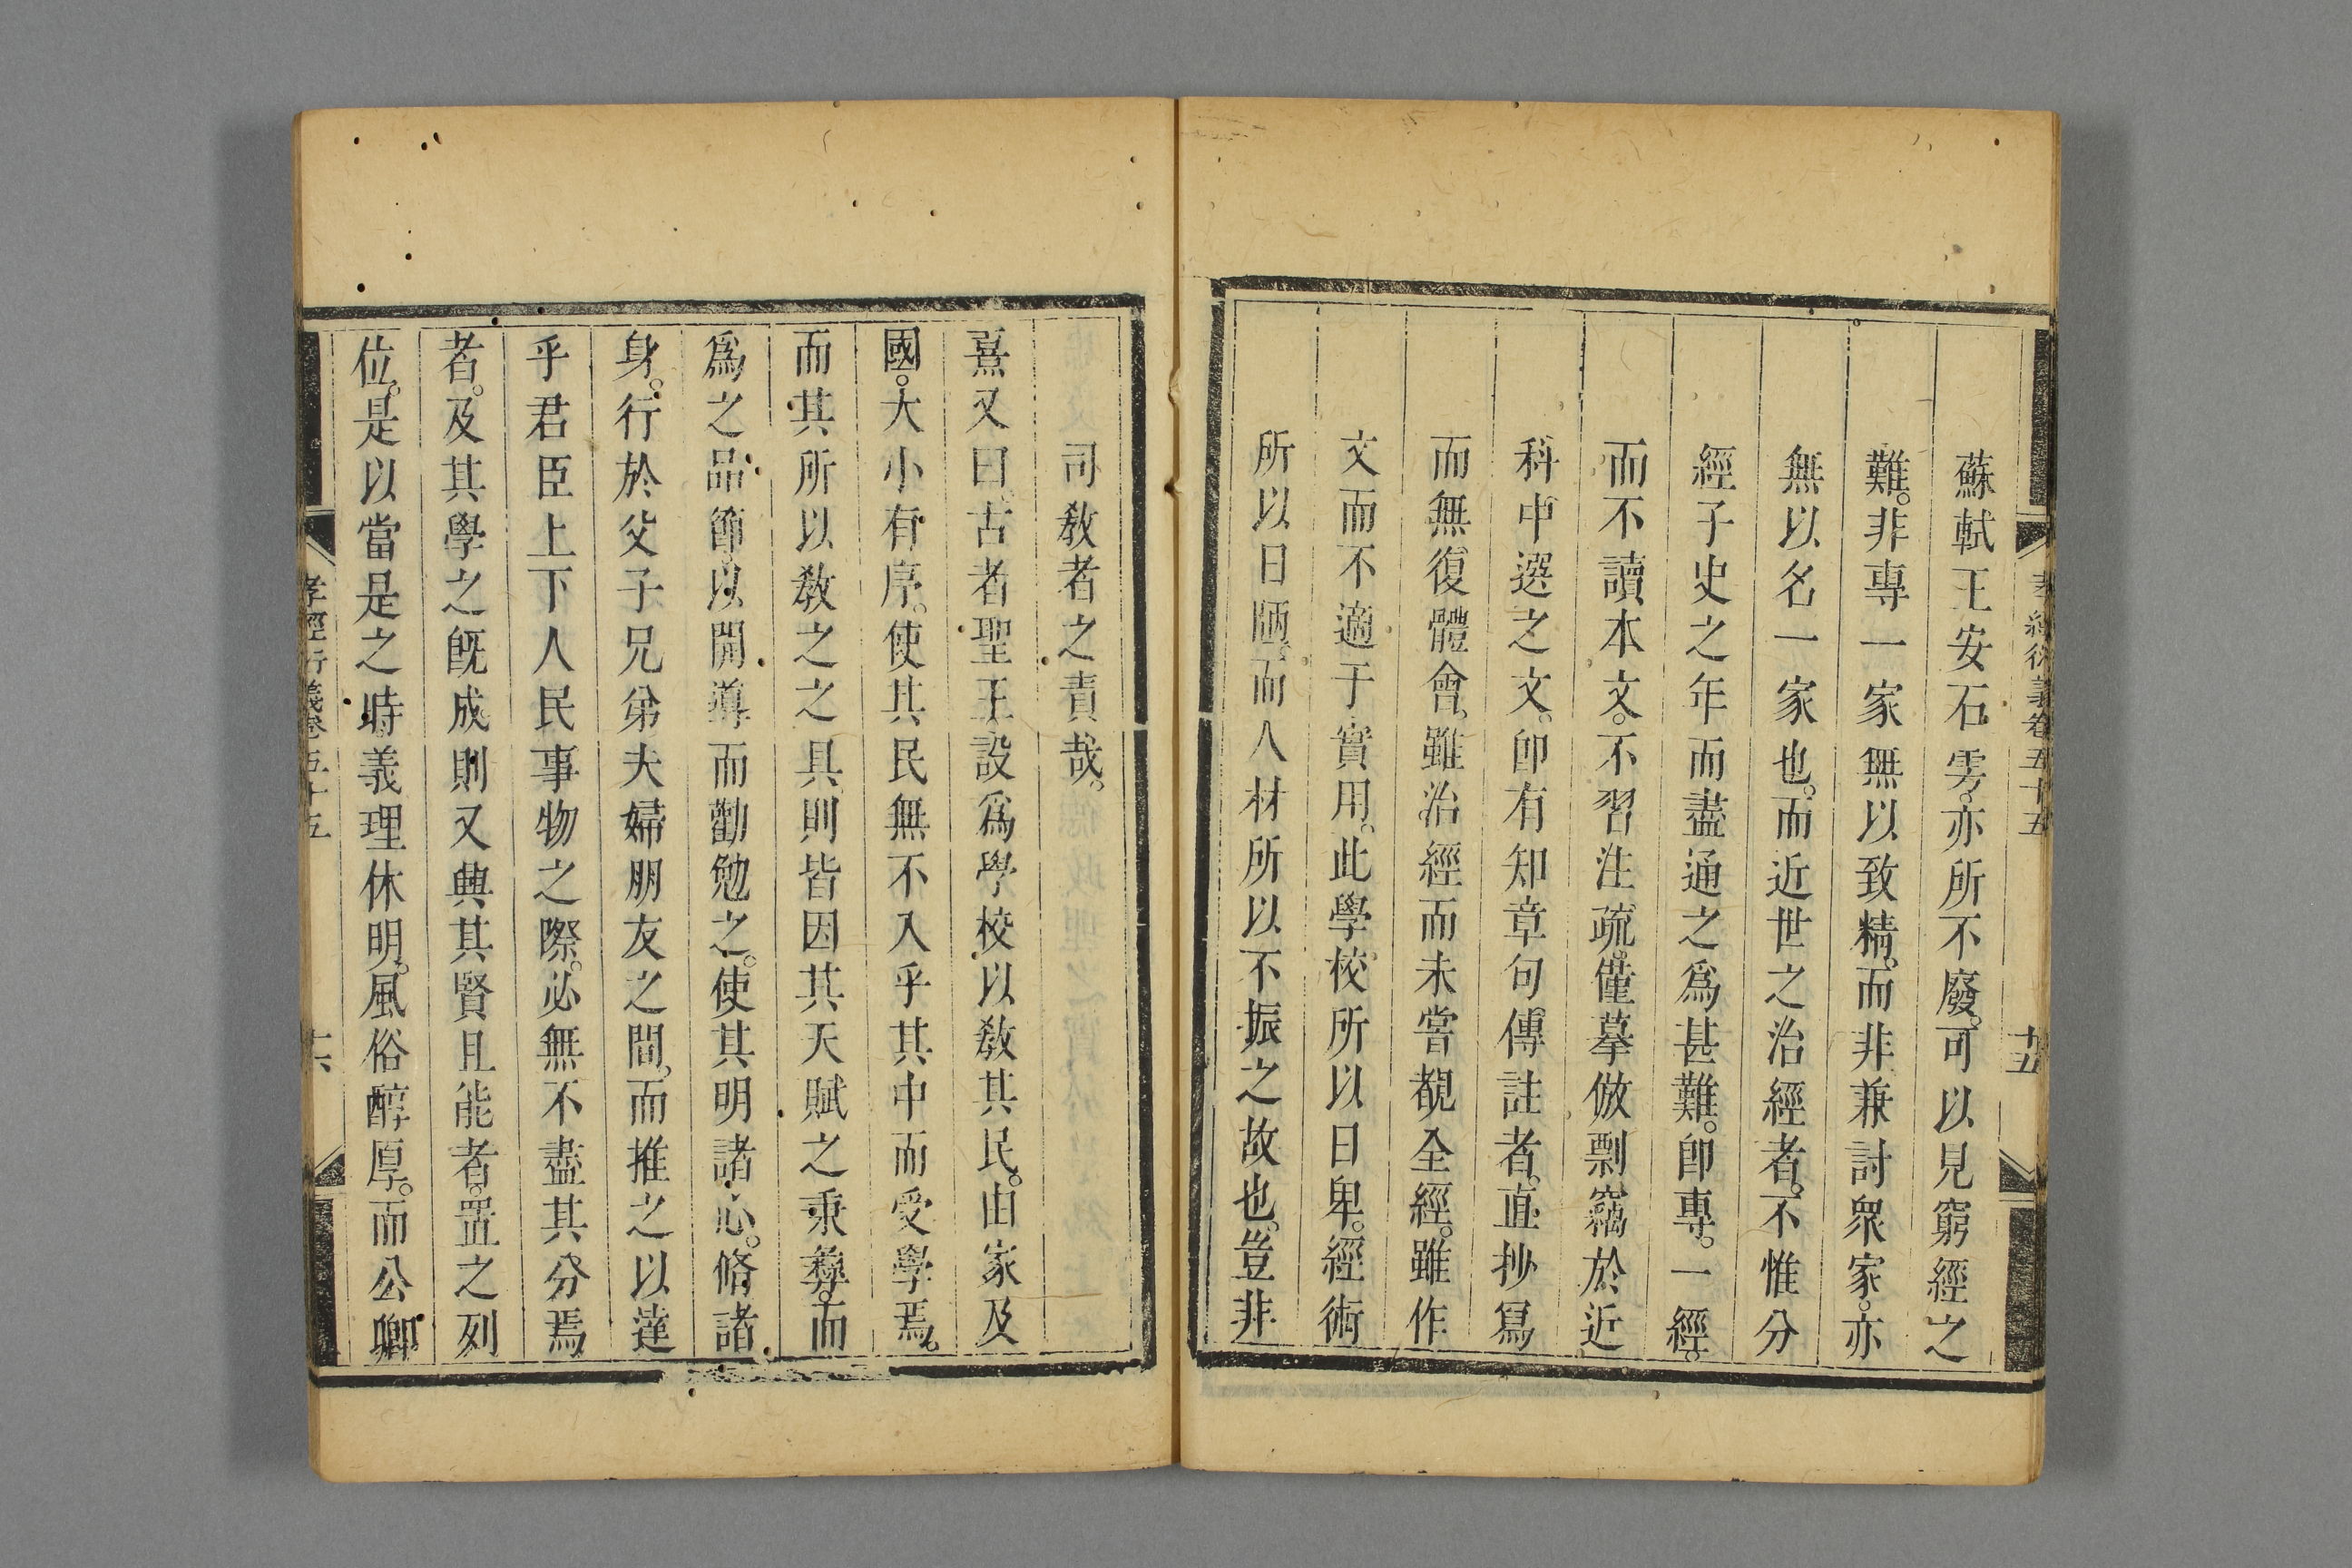 孝經衍義卷五十五
十五
蘇軾王安石雱。亦所不廢。可以見窮經之
難。非專一家無以致精。而非兼討眾家。亦
無以名一家也。而近世之治經者。不惟分
經子史之年而盡通之爲甚難。卽專。一經。
而不讀本文。不習注疏。僅摹倣剽竊於近
科中選之文。卽有知章句傳註者。直抄寫
而無復體會。雖治經而未嘗覩全經。雖作
文而不適于實用。此學校所以日卑。經術
所以日陋。而人材所以不振之故也。豈非
司敎者之責哉。
熹又曰。古者聖王設爲學校以敎其民。由家及
國。大小有序。使其民無不入乎其中而受學焉。
而其所以敎之之具則皆因其天賦之秉彞。而
爲之品節以開導而勸勉之。使其明諸心。脩諸
身。行於父子兄弟夫婦朋友之間。而推之以達
乎君臣上下人民事物之際。必無不盡其分焉
者。及其學之旣成則又興其賢且能者。置之列
位。是以當是之時義理休明。風俗醇厚。而公卿
孝經衍義卷五十五
十六